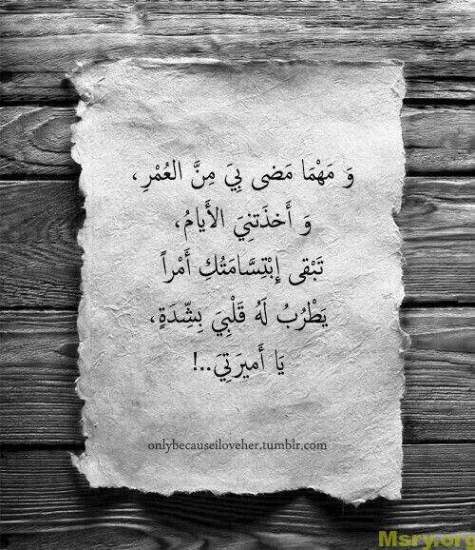 وَ مَهْمَا مَضى بِيَ مِنَّ العُمْرِ ،
وَ أَخذَتنِيَ الأَيامُ،
تَبْقى إِبْتِسَّامَتُكِ أَمْراً
يَطْرُبُ لَهُ قَلْبِيَ بِشِّدَةٍ،
يَا أَميرَتِيَ..!
onlybecauseiloveher.tumblr.com
Msry.org